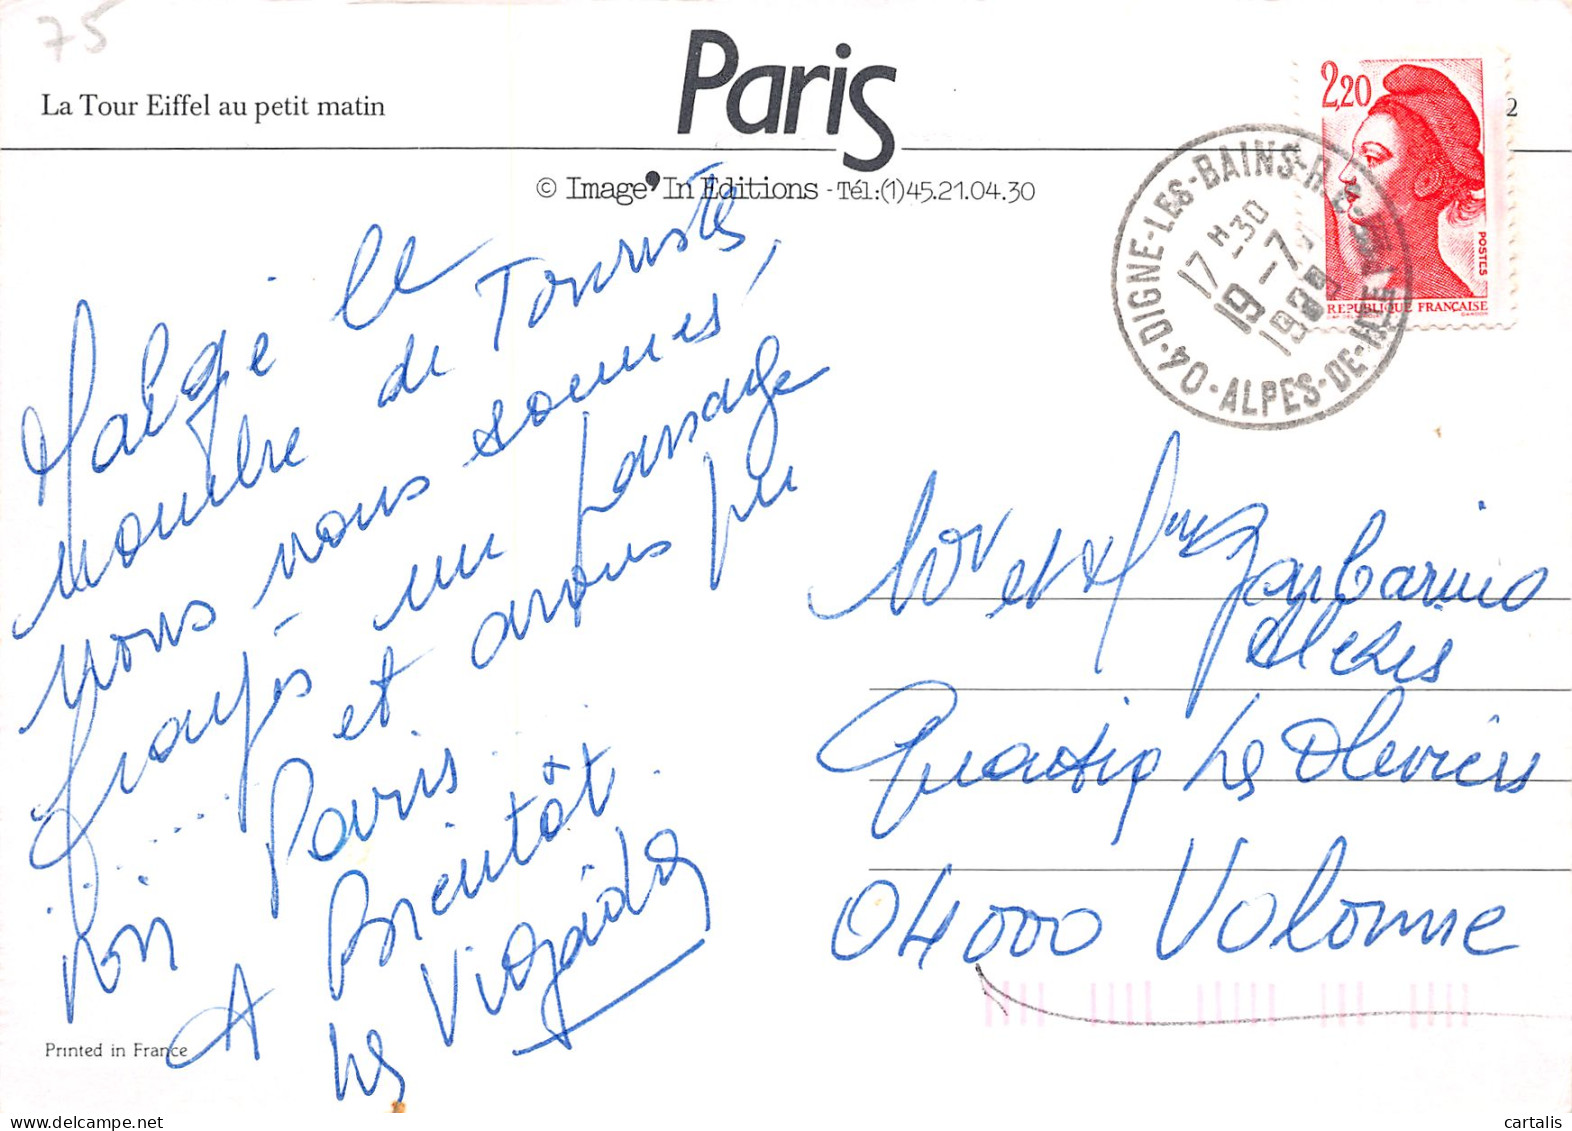 75
La Tour Eiffel au petit matin
Paris
2
© Image'In Editions - Tél:(1)45.21.04.30
2,20
POSTES
REPUBLIQUE FRANÇAISE
DIGNE-LES-BAINS-R.P.
04-ALPES-DE-HAUTE
17 H -30
19 -7
Malgré le
nombre de Touristes
nous nous sommes,
frayés un passage
..... et avons pu
voir Paris...
A Bientôt.
Les
Mr et Mme Garbarino
Alexis
Quartier Les Oliviers
04000 Volonne
Printed in France
cartalis